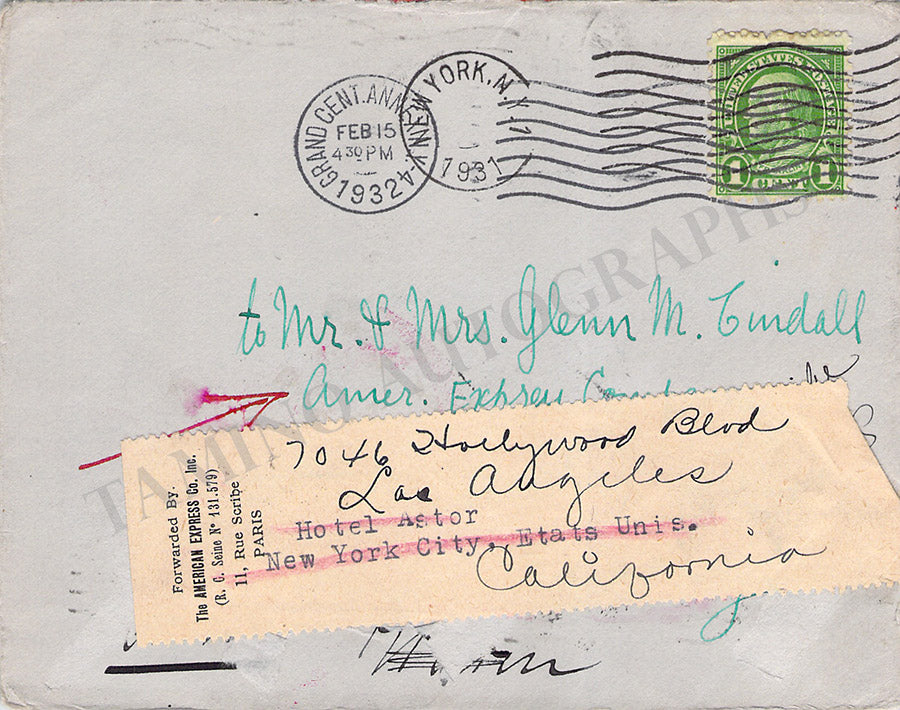 GRAND CENT. ANNEX
FEB 15
4 30 PM
1932
NEW YORK, N.Y.
1931
UNITED STATES POSTAGE
1 CENT 1
to Mr. & Mrs. Glenn M. Tindall
Amer. Express
7046 Hollywood Blvd
Los Angeles
Hotel Astor
New York City, Etats Unis.
California
Forwarded By.
The AMERICAN EXPRESS Co. Inc.
(R. C. Seine Nº 131.579)
11, Rue Scribe
PARIS
TAMINO AUTOGRAPHS